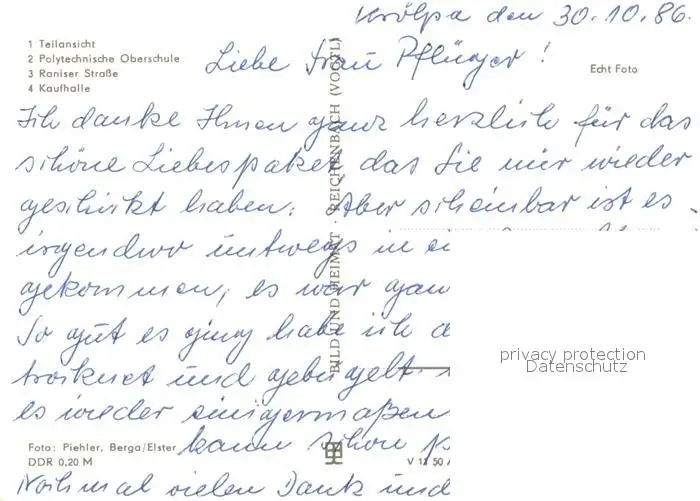 Krölpa den 30.10.86.
1 Teilansicht
2 Polytechnische Oberschule
3 Raniser Straße
4 Kaufhalle
Liebe Frau Pflüger!
Echt Foto
Ich danke Ihnen ganz herzlich für das
schöne Liebespaket das Sie mir wieder
geschickt haben. Aber scheinbar ist es
irgendwo untwegs in ei
gekommen, es war gan
So gut es ging habe ich d
troknet und gebügelt.
es wieder einigermaßen
kann schon
Nochmal vielen Dank und
BILD UND HEIMAT REICHENBACH (VOGTL)
Foto: Piehler, Berga/Elster
DDR 0,20 M
V 12 50
privacy protection
Datenschutz